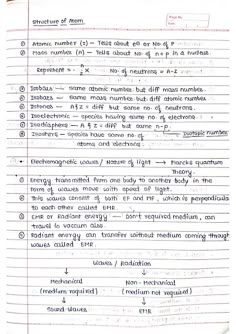 Structure of Atom
① Atomic number (z) - Tells about e⊖ or No of P
② Mass number (A) - Tells about No of n + P in a nucleus
Represent = - A/Z X No of neutrons = A-Z
① Isobars - same atomic number but diff mass number.
② Isobars - same mass number but diff atomic number
③ Isotones - A & Z = diff but same no of neutrons.
④ Isoelectronic - species having same no of electrons
⑤ Isodiaphers - A & Z = diff but same n-p.
⑥ Isosters - Species have same no of → Isotopic number
atoms and electrons.
• Electromagnetic waves / Nature of light → Plancks quantum
Theory.
① Energy transmitted from one body to another body in the
form of waves move with speed of light.
② This waves consist of both EF and MF, which is perpendicular
to each other called EMR
③ EMR or Radiant energy - Don't required medium, can
travel to vaccum also.
④ Radiant energy can transfer without medium coming through
waves called EMR.
Waves / Radiation
Mechanical Non-Mechanical
(medium required) (medium not required)
Sound waves EMR